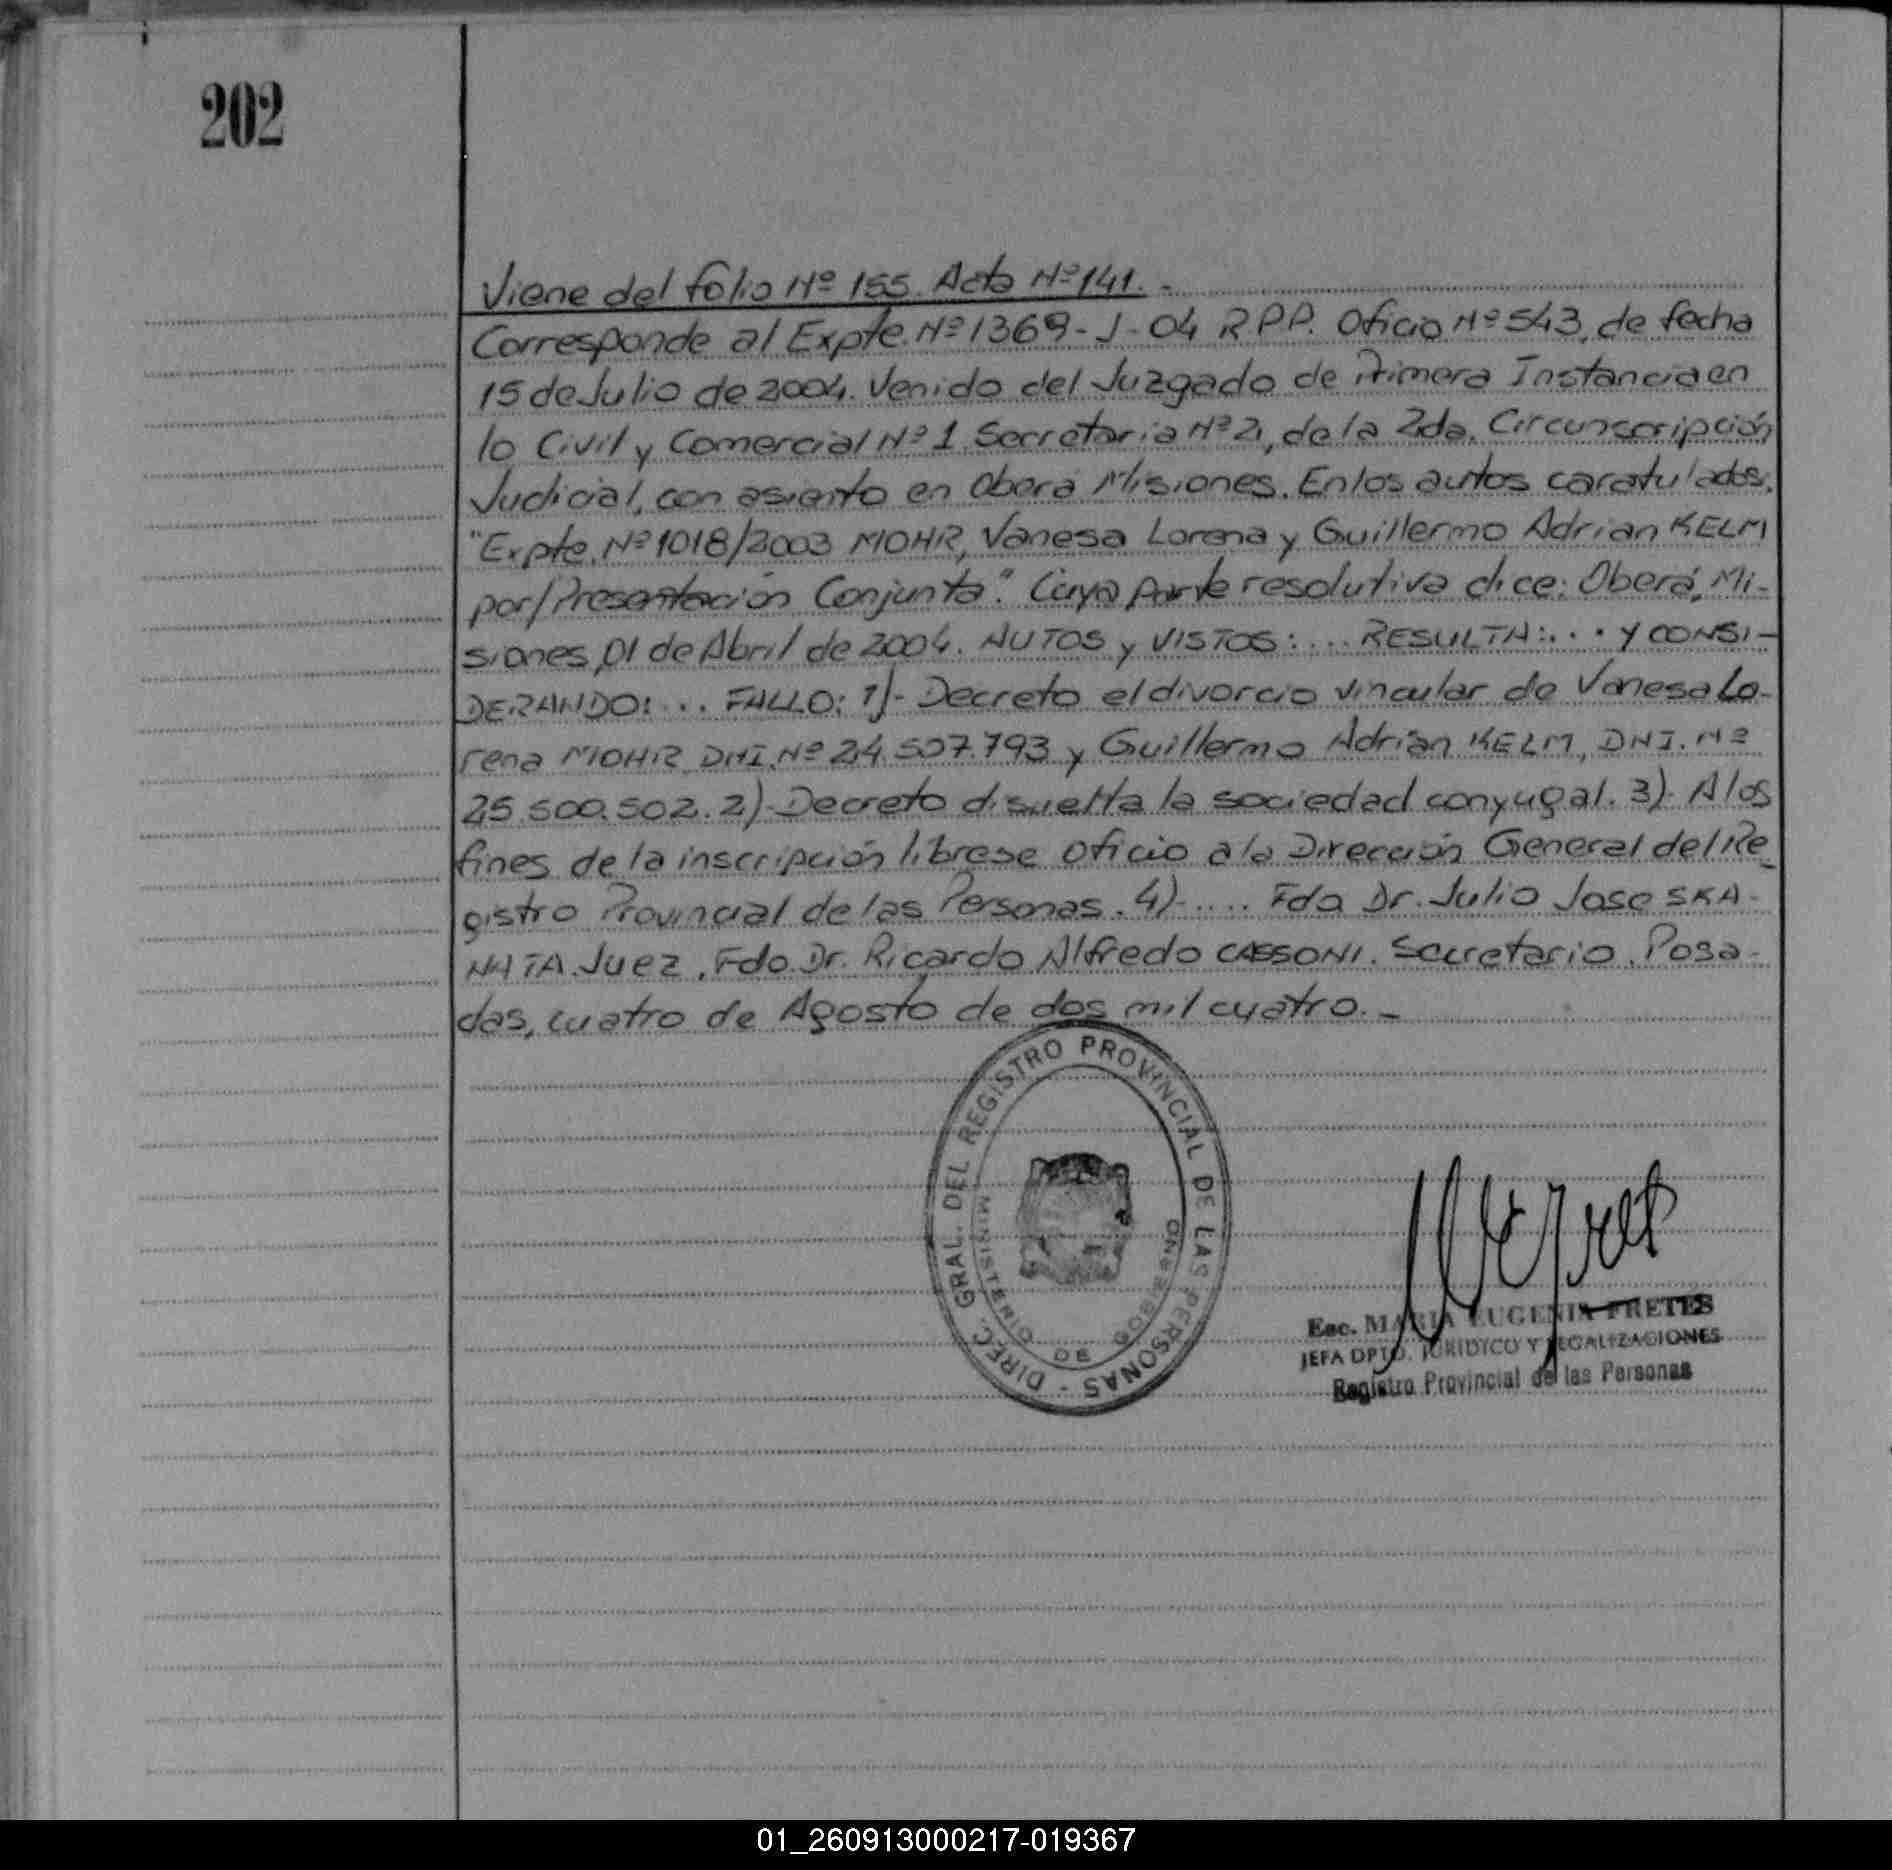 202
Viene del folio Nº 155. Acta Nº 141. -
Corresponde al Expte. Nº 1369-J-04 R.P.P. Oficio Nº 543, de fecha
15 de Julio de 2004. Venido del Juzgado de Primera Instancia en
lo Civil y Comercial Nº 1 Secretaria Nº 2, de la 2da. Circunscripción
Judicial, con asiento en Oberá Misiones. En los autos caratulados:
"Expte. Nº 1018/2003 MOHR, Vanesa Lorena y Guillermo Adrian KELM
por/Presentación Conjunta". Cuya parte resolutiva dice: Oberá, Mi-
siones, 01 de Abril de 2004. AUTOS y VISTOS:... RESULTA:... Y CONSI-
DERANDO:... FALLO: 1)- Decreto el divorcio vincular de Vanesa Lo-
rena MOHR DNI. Nº 24.507.793 y Guillermo Adrián KELM, DNI. Nº
25.500.502. 2)- Decreto disuelta la sociedad conyugal. 3)- A los
fines de la inscripción librese oficio a la Dirección General del Re-
gistro Provincial de las Personas. 4)-.... Fdo Dr. Julio Jose SKA-
NATA. Juez. Fdo. Dr. Ricardo Alfredo CASSONI. Secretario. Posa-
das, cuatro de Agosto de dos mil cuatro. -
DIREC. GRAL. DEL REGISTRO PROVINCIAL DE LAS PERSONAS -
MINISTERIO DE GOBIERNO
Esc. MARIA EUGENIA FRETES
JEFA DPTO. JURIDICO Y LEGALIZACIONES
Registro Provincial de las Personas
01_260913000217-019367